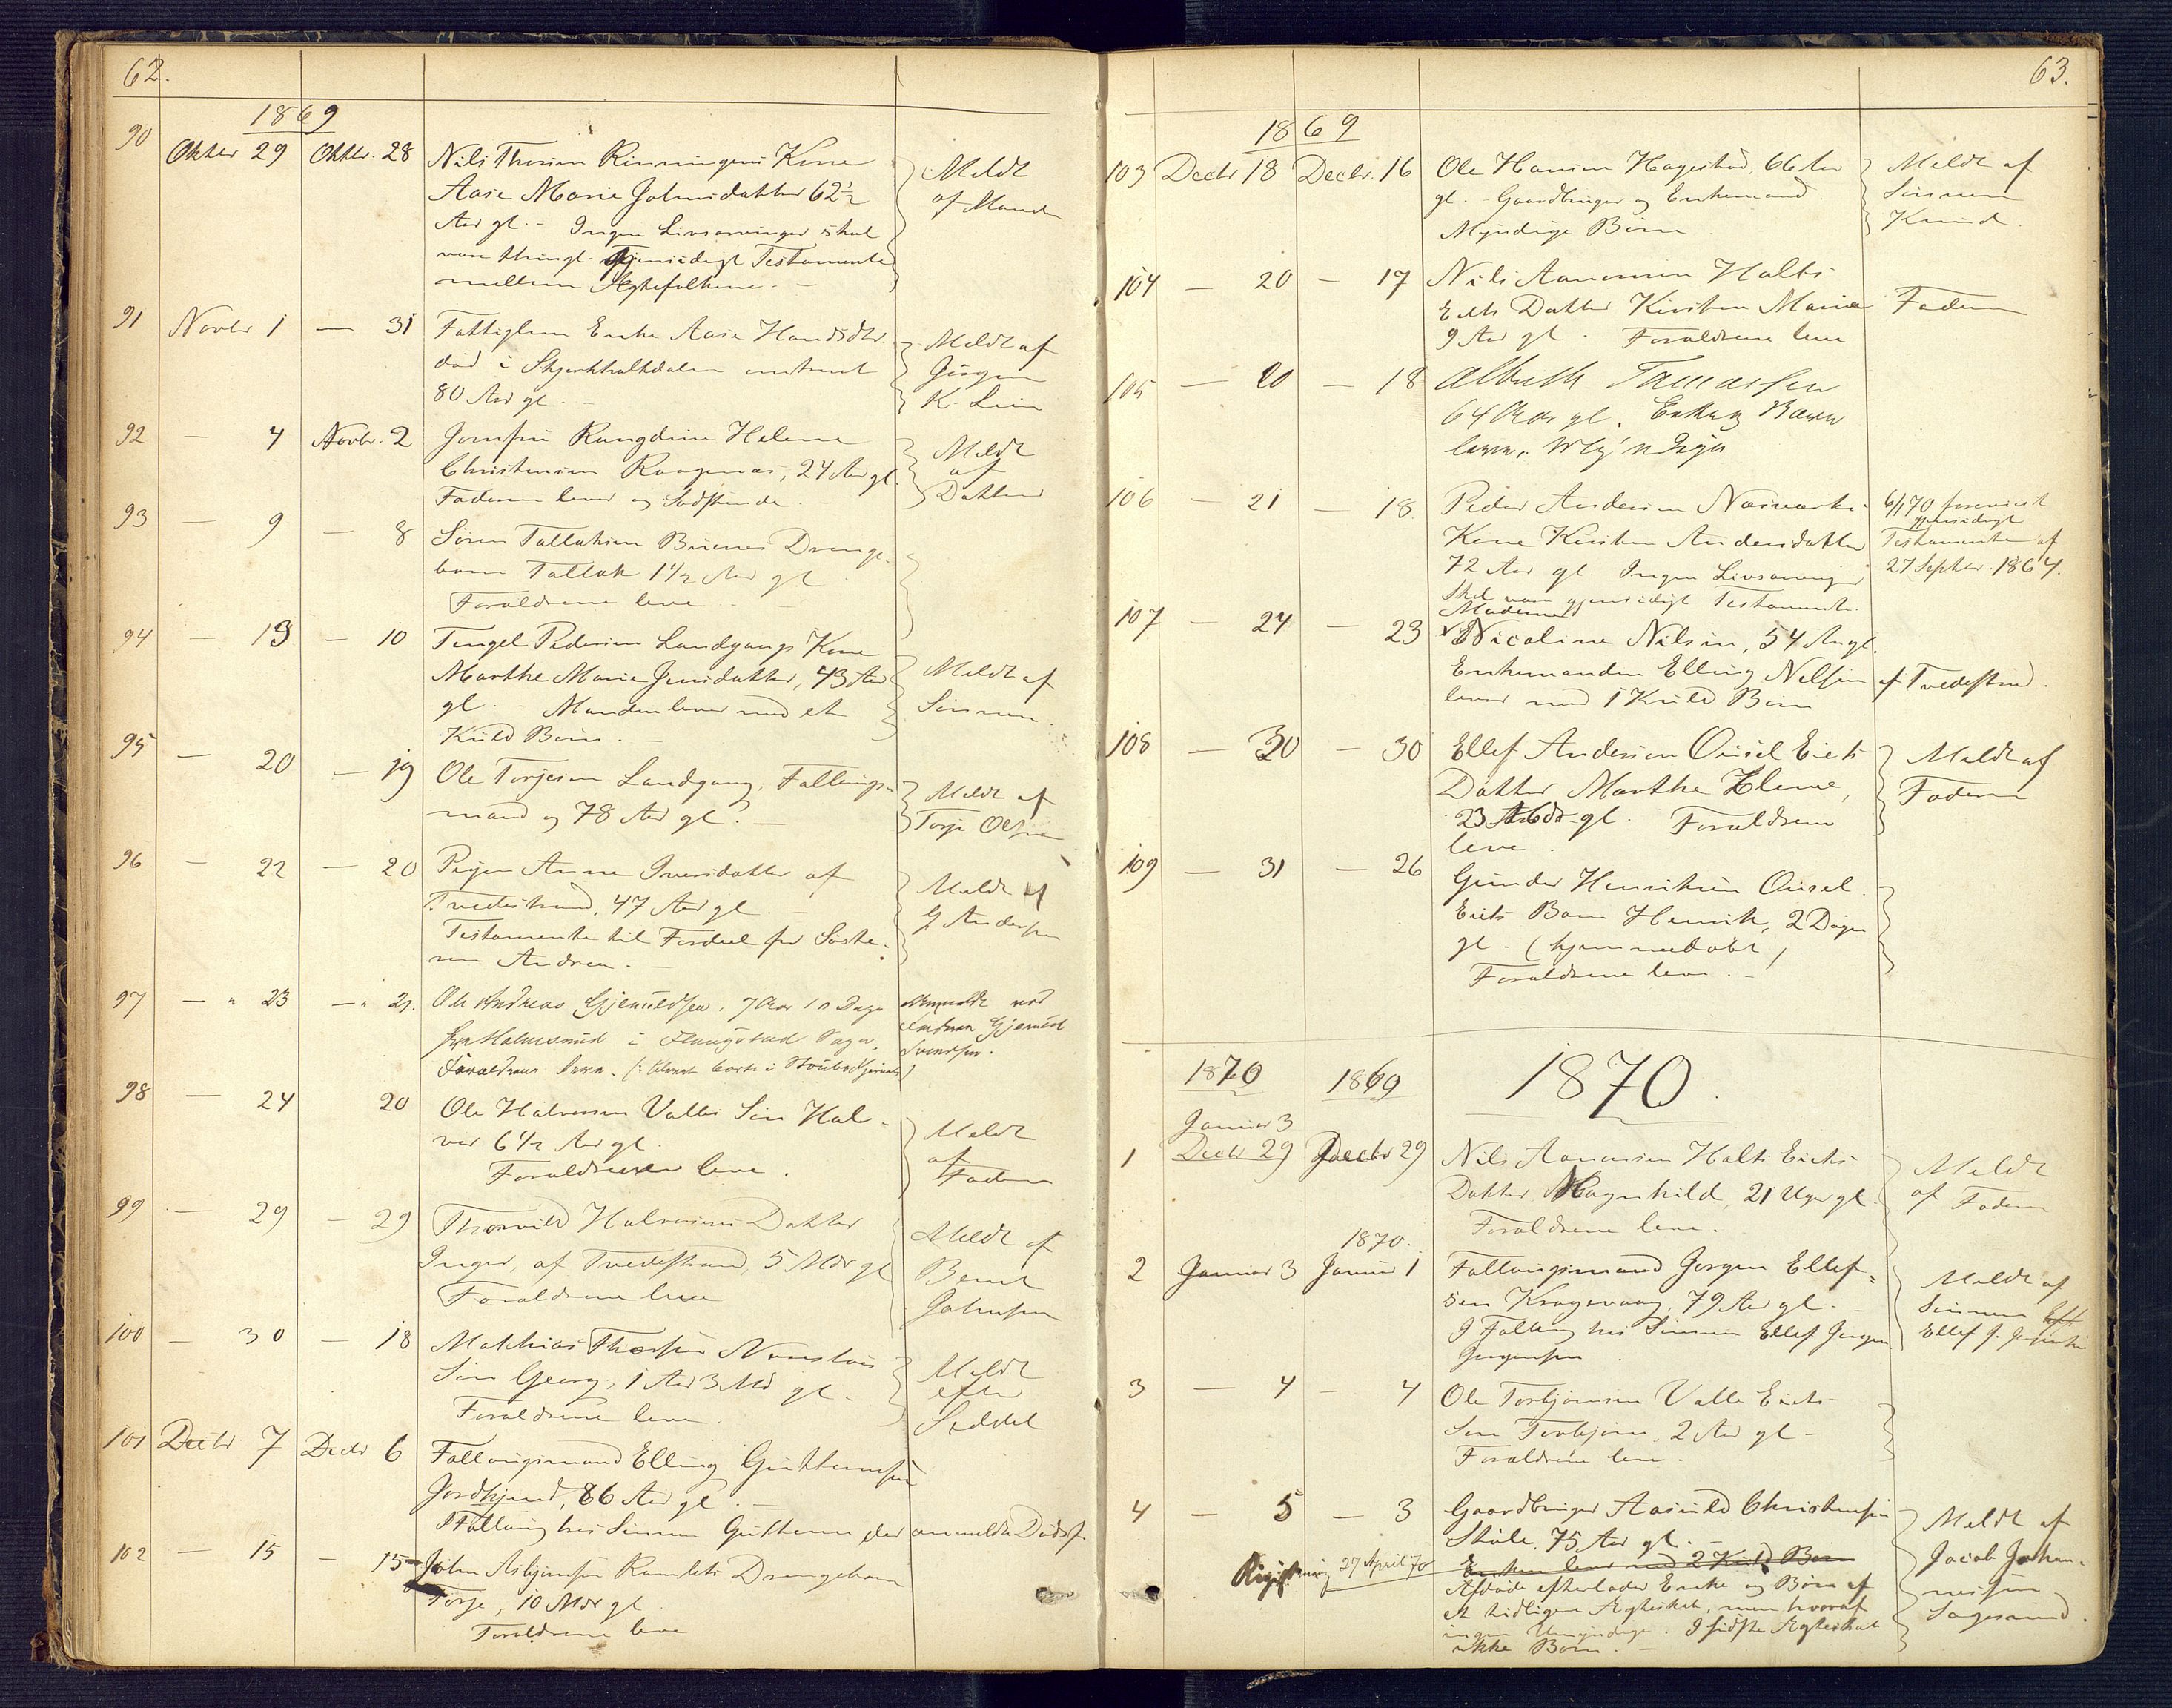 62.
1869
90 Oktbr 29 Oktbr. 28 Nils Thorsen Rinningens Kone
Aase Marie Johnsdatter 62½
Aar gl. - Ingen Livsarvinger skal
være thingl. Gjensidigt Testamente
mellem Ægtefolkene. -
Meldt
af Manden
91 Novbr 1 — 31 Fattiglem Enke Aase Handsdtr.
død i Skjerkholtdalen omtrent
80 Aar gl. -
Meldt af
Jörgen
K. Lien
92 — 4 Novbr. 2 Jomfru Rangdine Helene
Christensen Raagenæs, 24 Aar gl.
Faderen lever og Sødskende.
Meldt
af
Datteren
93 — 9 — 8 Sören Tallaksen Buenes Drenge-
barn Tallak 1½ Aar gl
Forældrene leve.
94 — 13 — 10 Tengel Pedersen Landgangs Kone
Marthe Marie Jensdatter, 43 Aar
gl. - Manden lever med et
Kuld Børn. -
Meldt af
Sönnen.
95 — 20 — 19 Ole Torjesen Landgang, Føllougs-
mand og 78 Aar gl. -
Meldt af
Torje Olsen
96 — 22 — 20 Pigen Anne Iversdatter af
Tvedestrand, 47 Aar gl. -
Testamente til Fordeel for Søste-
ren Andrea. -
Meldt af
G Andersen
97 — " 23 — " 21. Ole Andreas Gjeruldsen, 7 Aar 10 Dage
fra Holmesund i Flangstad Sogn.
Forældrene leve.
Anmeldt ved
Faderen Gjeruld
Svendsen.
98 — 24 20 Ole Halvorsen Valle Sön Hal-
vor 6½ Aar gl.
Forældrene leve.
Meldt
af
Faderen
99 — 29 — 29 Thorvild Halvorsens Datter
Inger, af Tvedestrand, 5 Mdr gl
Forældrene leve
Meldt af
Bernt
Johnsen
100 — 30 — 18 Mathias Thorsen
Sön Georg, 1 Aar 3 Md gl.
Forældrene leve.
Meldt
efter
Seddel
101 Decbr 7 Decbr 6 Føllougsmand Elling Guttormsen
Jordkjend, 86 Aar gl. -
I Følloug hos Sönnen Guttorm der anmeldte Dødsf.
102 — 15 — 15 John Asbjörnsen Ramlets Drengebarn
Torje, 10 Mdr gl
Forældrene leve
63.
1869
103 Decbr 18 Decbr. 16 Ole Hansen Hagestad, 66 Aar
gl. - Gaardbruger og Enkemand
Myndige Børn.
Meldt af
Sönnen
Knud.
104 — 20 — 17 Nils Aanonsen Holts
Ægte Datter Kirsten Marie
9 Aar gl. Forældrene leve
Faderen
105 — 20 — 18 Albreth Tomassen
64 Aar gl. Enke og Børn
lever. Myndige
106 — 21 — 18. Peder Andersen Næsverks
Kone Kirsten Andersdatter
72 Aar gl. Ingen Livsarvinger
Skal være gjensidigt Testamente.
6/1 70 foreviist
gjensidigt
Testamente af
27 Septbr. 1864.
107 — 24 — 23 Madame
Nicoline Nilsen, 54 Aar gl.
Enkemanden Elling Nilsen af Tvedestrand.
lever med 1 Kuld Børn
108 — 30 — 30 Ellef Andersen Ousel Ægte
Datter Marthe Helene,
23 gl. Forældrene
leve.
Meldt af
Faderen
109 — 31 — 26 Gunder Henriksen Ousel.
Ægte Barn Henrik, 2 Dage
gl. - (hjemmedøbt)
Forældrene leve. -
1870 1869 1870.
Januar 3
1 Decbr 29 Decbr 29 Nils Aanonsen Holts Ægte
Datter Magnhild, 21 Uger gl.
Forældrene leve.
Meldt
af Faderen
1870.
2 Januar 3 Januar 1 Føllougsmand Jörgen Ellef-
sen Kragsvaag, 79 Aar gl. -
I Følloug hos Sönnen Ellef Jörgen
Jörgensen.
Meldt af
Sönnen
Ellef J. Jörgensen
3 — 4 — 4 Ole Torbjørnsen Valle Ægte
Sön Torbjørn, 2 Aar gl -
Forældrene leve.
4 — 5 — 3 Gaardbruger Aasuld Christensen
Skole. 75 Aar gl. -
Enken lever med 2 Kuld Børn
Registrering 27 April 70
Afdøde efterlader Enke og Børn af
et tidligere Ægteskab, men hvoraf
ingen Umyndige. I sidste Ægteskab
ikke Børn. -
Meldt af
Jacob Johan-
nesen
Sagesund.